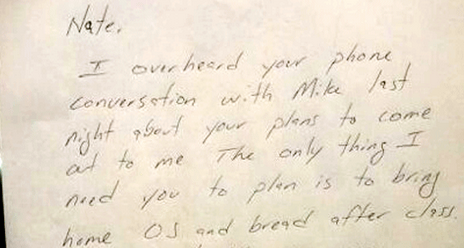 Nate,
I overheard your phone
conversation with Mike last
night about your plans to come
out to me The only thing I
need you to plan is to bring
home OJ and bread after class.